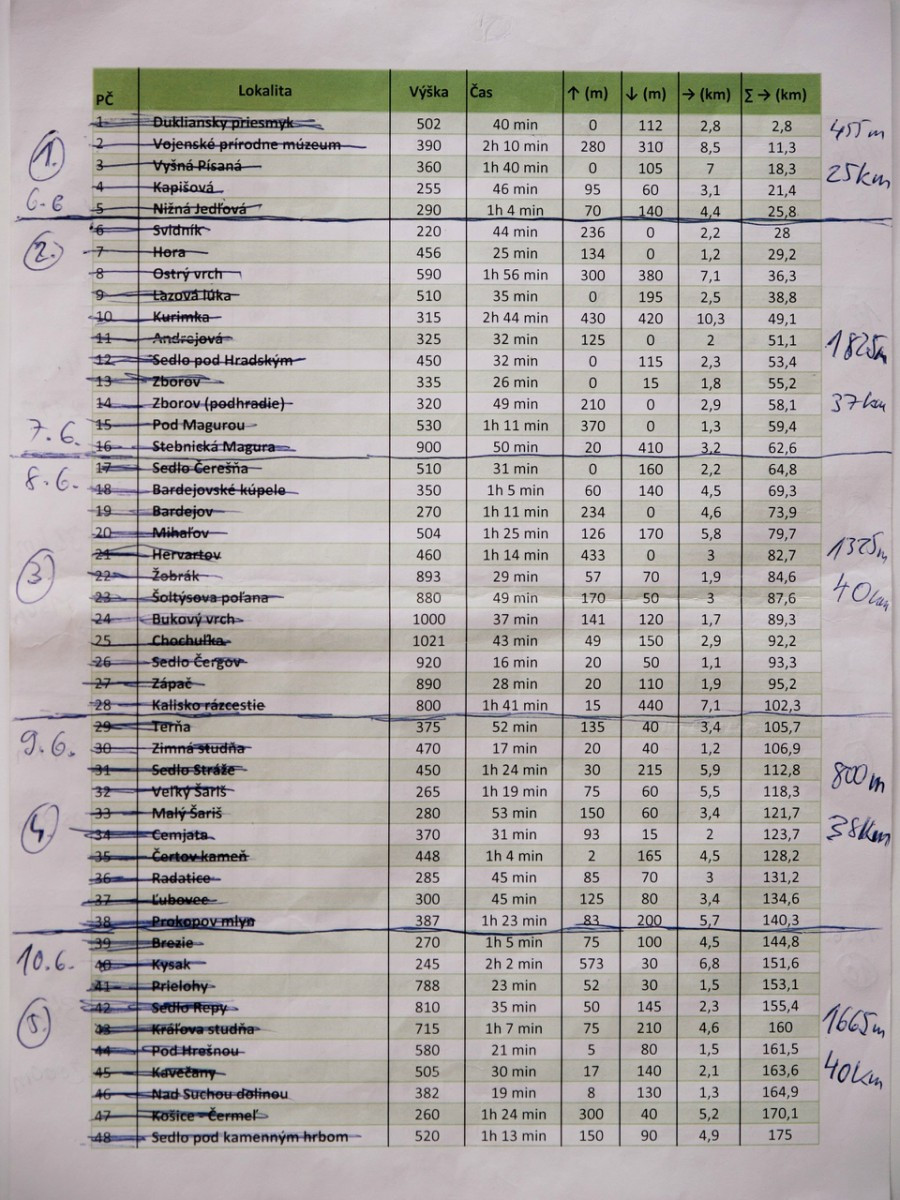 PČ Lokalita Výška Čas ↑ (m) ↓ (m) → (km) ∑ → (km)
1 Dukliansky priesmyk 502 40 min 0 112 2,8 2,8 455m
1. 2 Vojenské prírodne múzeum 390 2h 10 min 280 310 8,5 11,3
3 Vyšná Písaná 360 1h 40 min 0 105 7 18,3 25km
4 Kapišová 255 46 min 95 60 3,1 21,4
6.6 5 Nižná Jedľová 290 1h 4 min 70 140 4,4 25,8
6 Svidník 220 44 min 236 0 2,2 28
2. 7 Hora 456 25 min 134 0 1,2 29,2
8 Ostrý vrch 590 1h 56 min 300 380 7,1 36,3
9 Lazová lúka 510 35 min 0 195 2,5 38,8
10 Kurimka 315 2h 44 min 430 420 10,3 49,1
11 Andrejová 325 32 min 125 0 2 51,1 1825m
12 Sedlo pod Hradským 450 32 min 0 115 2,3 53,4
13 Zborov 335 26 min 0 15 1,8 55,2
14 Zborov (podhradie) 320 49 min 210 0 2,9 58,1 37km
7.6. 15 Pod Magurou 530 1h 11 min 370 0 1,3 59,4
16 Stebnická Magura 900 50 min 20 410 3,2 62,6
8.6. 17 Sedlo Čerešňa 510 31 min 0 160 2,2 64,8
18 Bardejovské kúpele 350 1h 5 min 60 140 4,5 69,3
19 Bardejov 270 1h 11 min 234 0 4,6 73,9
20 Mihaľov 504 1h 25 min 126 170 5,8 79,7
21 Hervartov 460 1h 14 min 433 0 3 82,7 1325m
3 22 Žobrák 893 29 min 57 70 1,9 84,6
23 Šoltýsova poľana 880 49 min 170 50 3 87,6 40km
24 Bukový vrch 1000 37 min 141 120 1,7 89,3
25 Chochuľka 1021 43 min 49 150 2,9 92,2
26 Sedlo Čergov 920 16 min 20 50 1,1 93,3
27 Zápač 890 28 min 20 110 1,9 95,2
28 Kalisko rázcestie 800 1h 41 min 15 440 7,1 102,3
29 Terňa 375 52 min 135 40 3,4 105,7
9.6. 30 Zimná studňa 470 17 min 20 40 1,2 106,9
31 Sedlo Stráže 450 1h 24 min 30 215 5,9 112,8 800m
32 Veľký Šariš 265 1h 19 min 75 60 5,5 118,3
33 Malý Šariš 280 53 min 150 60 3,4 121,7
4. 34 Cemjata 370 31 min 93 15 2 123,7 38km
35 Čertov kameň 448 1h 4 min 2 165 4,5 128,2
36 Radatice 285 45 min 85 70 3 131,2
37 Ľubovec 300 45 min 125 80 3,4 134,6
38 Prokopov mlyn 387 1h 23 min 83 200 5,7 140,3
39 Brezie 270 1h 5 min 75 100 4,5 144,8
10.6. 40 Kysak 245 2h 2 min 573 30 6,8 151,6
41 Prielohy 788 23 min 52 30 1,5 153,1
42 Sedlo Repy 810 35 min 50 145 2,3 155,4
5. 43 Kráľova studňa 715 1h 7 min 75 210 4,6 160 1665m
44 Pod Hrešnou 580 21 min 5 80 1,5 161,5
45 Kavečany 505 30 min 17 140 2,1 163,6 40km
46 Nad Suchou dolinou 382 19 min 8 130 1,3 164,9
47 Košice - Čermeľ 260 1h 24 min 300 40 5,2 170,1
48 Sedlo pod kamenným hrbom 520 1h 13 min 150 90 4,9 175